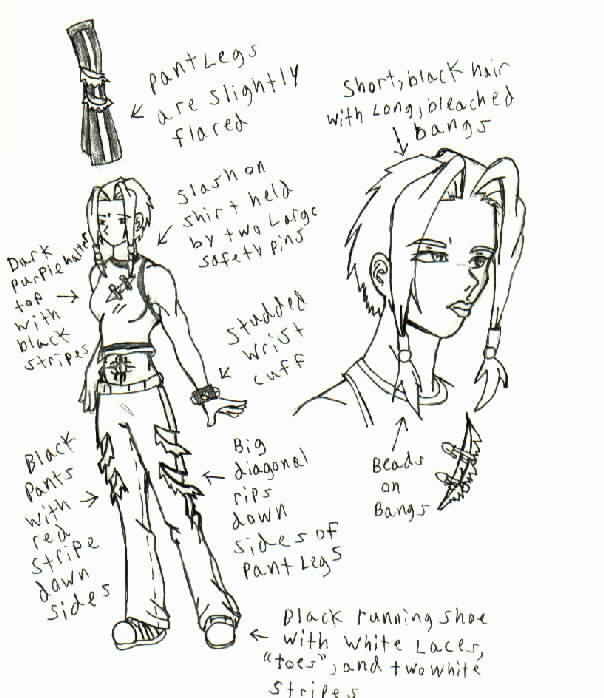 Pant Legs
are slightly
flared
Short, black hair
with Long, bleached
bangs
Slash on
shirt held
by two Large
safety pins
Dark
purple halter
top
with
black
stripes
Studded
wrist
cuff
Black
Pants
with
red
stripe
down
sides
Big
diagonal
rips
down
sides of
Pant Legs
Beads
on
Bangs
Black running shoe
with white Laces,
"toes", and two white
stripes